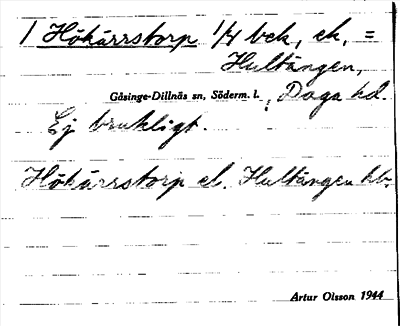 1 Hökärrstorp 1/4 bck, ck, =
Hultängen,
Gåsinge-Dillnäs sn, Söderm. l., Daga hd.
Ej brukligt.
Hökärrstorp el. Hultängen hb.
Artur Olsson 1944